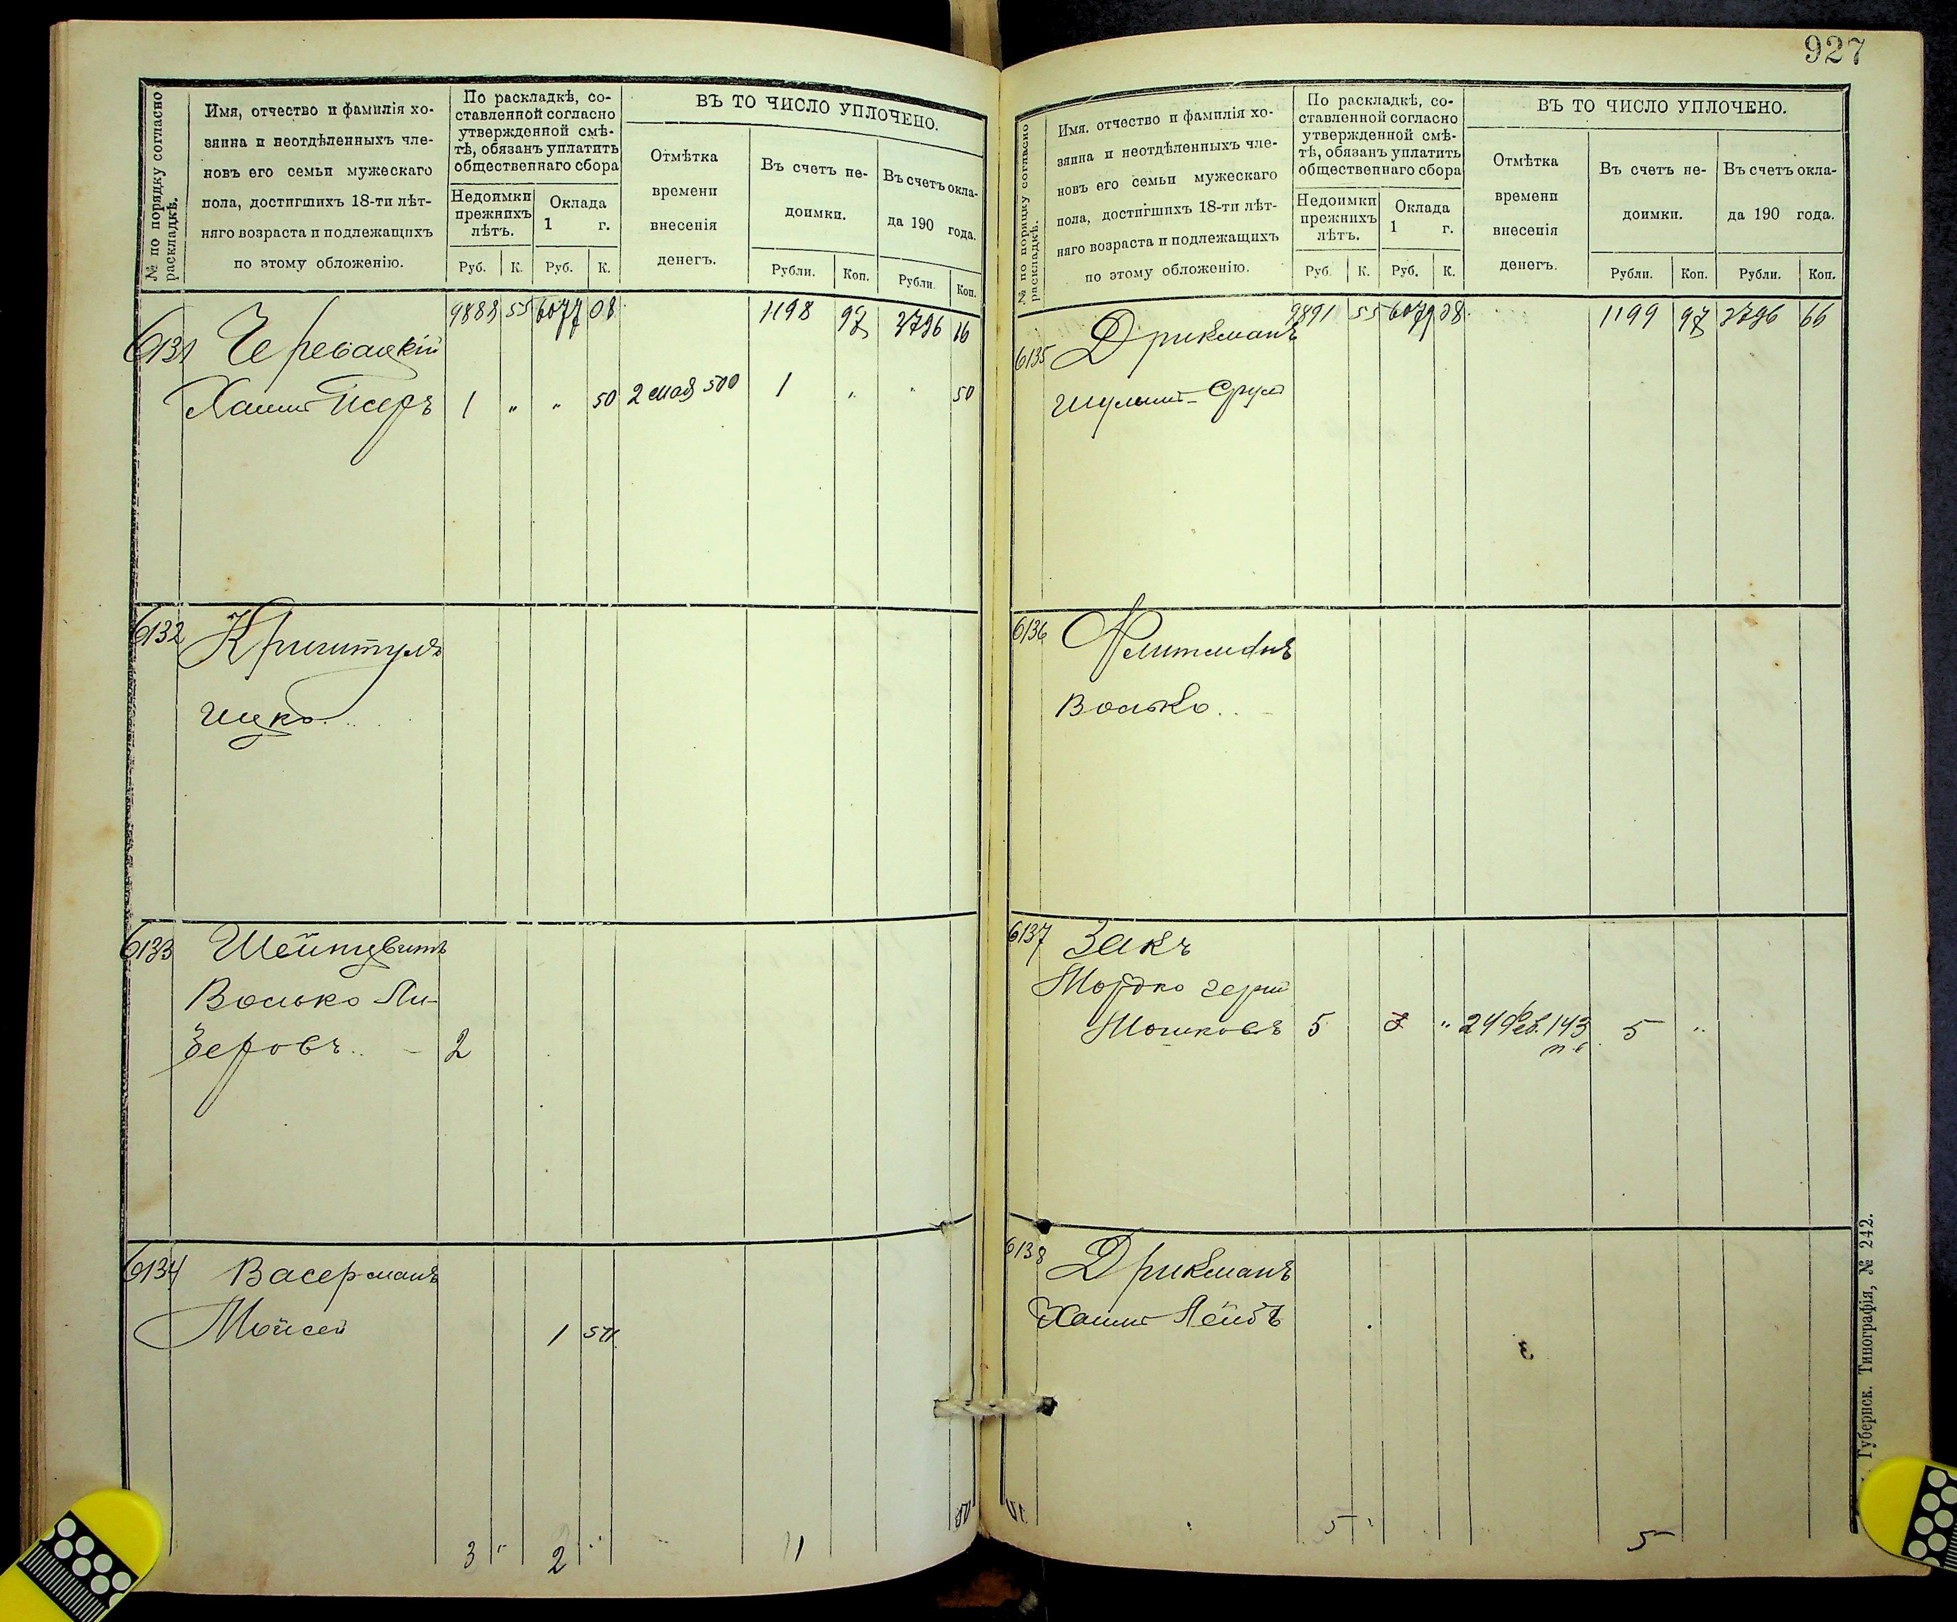 927
№ по порядку согласно
раскладкѣ.
Имя, отчество и фамилія хо-
зяина и неотдѣленныхъ чле-
новъ его семьи мужескаго
пола, достигшихъ 18-ти лѣт-
няго возраста и подлежащихъ
по этому обложенію.
По раскладкѣ, со-
ставленной согласно
утвержденной смѣ-
тѣ, обязанъ уплатить
общественнаго сбора
Недоимки
прежнихъ
лѣтъ.
Оклада
1 г.
Руб. К. Руб. К.
ВЪ ТО ЧИСЛО УПЛОЧЕНО.
Отмѣтка
времени
внесенія
денегъ.
Въ счетъ не-
доимки.
Рубли. Коп.
Въ счетъ окла-
да 190 года.
Рубли. Коп.
9888 55 6077 08 1198 97 3796 16
6131 Черевацкій
Хаимъ Псеръ 1 " " 50 2 мая 500 1 " " 50
6132
Ицко
6133
Волько Ли-
зеровъ 2
6134 Васерманъ
Мойсей 1 50
3 " 2 " 1 50
№ по порядку согласно
раскладкѣ.
Имя, отчество и фамилія хо-
зяина и неотдѣленныхъ чле-
новъ его семьи мужескаго
пола, достигшихъ 18-ти лѣт-
няго возраста и подлежащихъ
по этому обложенію.
По раскладкѣ, со-
ставленной согласно
утвержденной смѣ-
тѣ, обязанъ уплатить
общественнаго сбора
Недоимки
прежнихъ
лѣтъ.
Оклада
1 г.
Руб. К. Руб. К.
ВЪ ТО ЧИСЛО УПЛОЧЕНО.
Отмѣтка
времени
внесенія
денегъ.
Въ счетъ не-
доимки.
Рубли. Коп.
Въ счетъ окла-
да 190 года.
Рубли. Коп.
9891 55 6079 08 1199 97 3796 66
6135 Дрикманъ
Шулимъ-Сруль
6136
Волько
6137 Закъ
Мордко Герш
Мошковъ 5 3 " 24 Фев. 143 5 "
6138 Дрикманъ
Хаимъ Лейбъ
5 5
Губернск. Типографія, № 242.